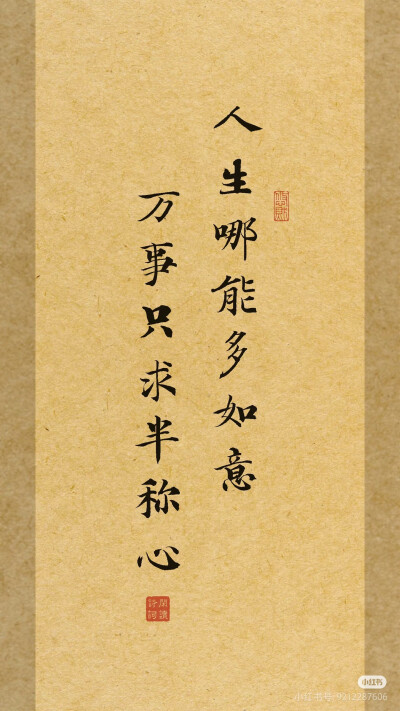 人生哪能多如意
万事只求半称心
小红书
小红书号:9213287606